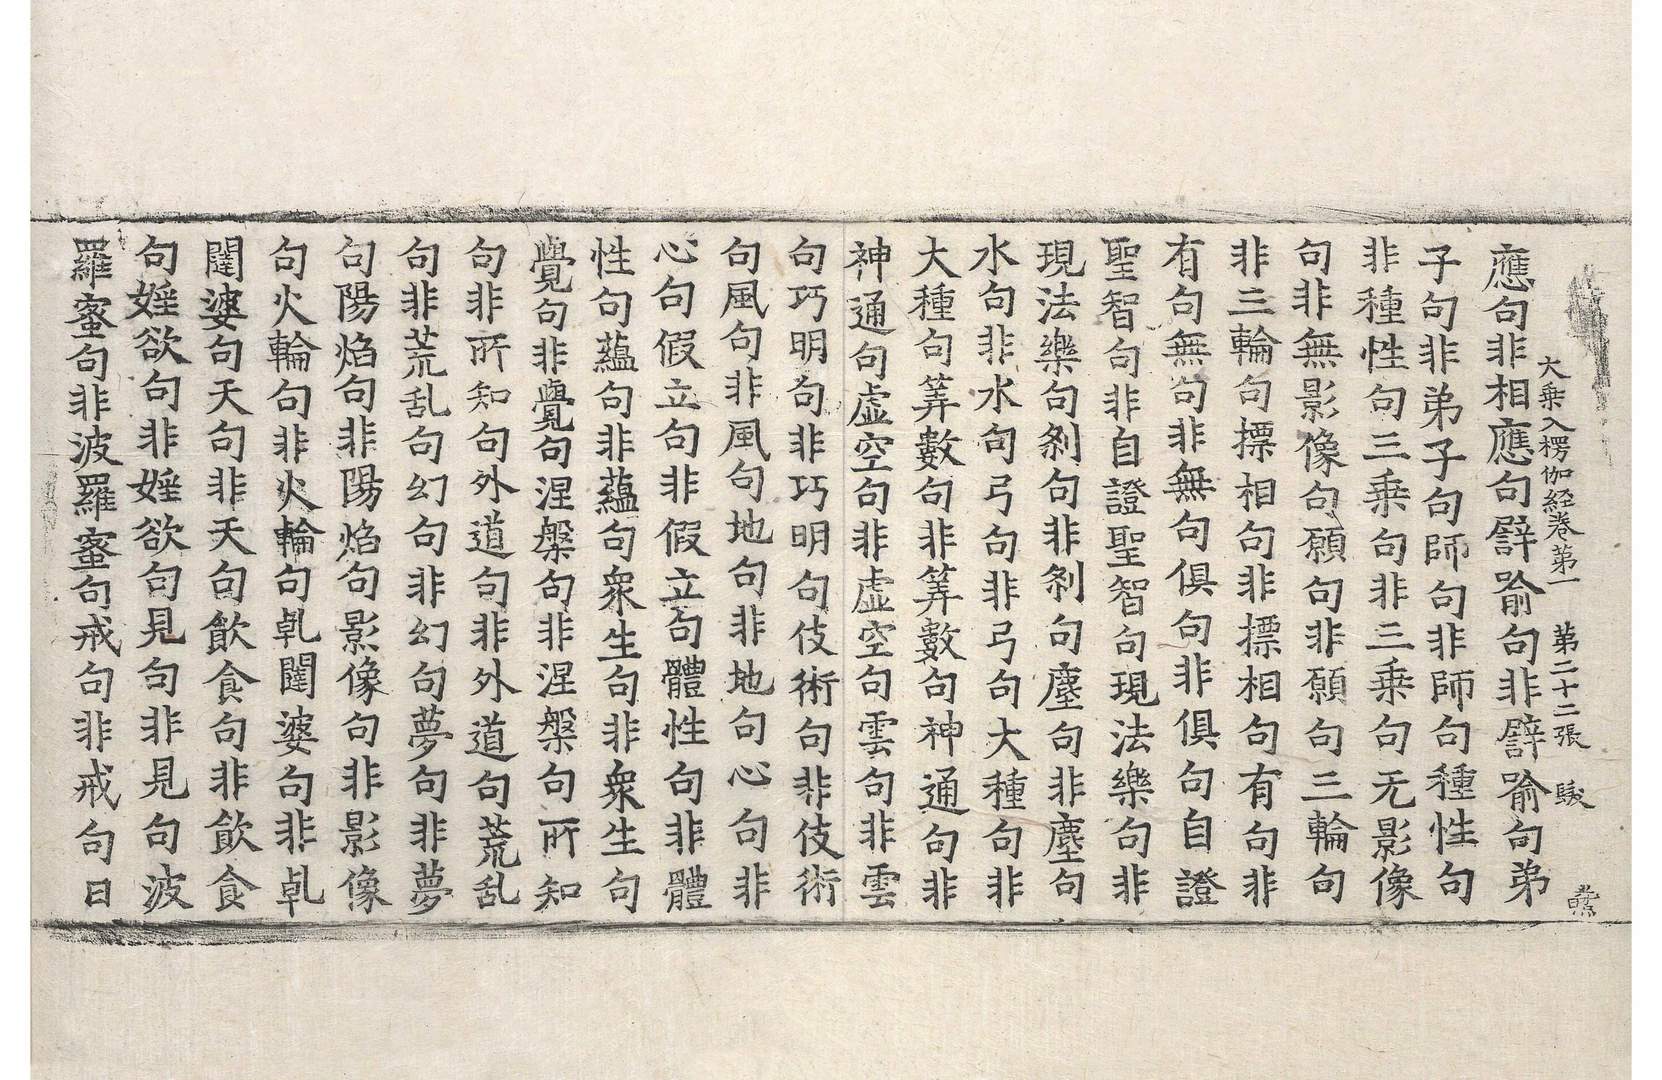 大乗入楞伽経卷第一 第二十二張 駿
應句非相應句譬喻句非譬喻句弟
子句非弟子句師句非師句種性句
非種性句三乗句非三乗句无影像
句非無影像句願句非願句三輪句
非三輪句摽相句非摽相句有句非
有句無句非無句俱句非俱句自證
聖智句非自證聖智句現法樂句非
現法樂句剎句非剎句塵句非塵句
水句非水句弓句非弓句大種句非
大種句筭數句非筭數句神通句非
神通句虛空句非虛空句雲句非雲
句巧明句非巧明句伎術句非伎術
句風句非風句地句非地句心句非
心句假立句非假立句體性句非體
性句蘊句非蘊句衆生句非衆生句
覺句非覺句涅槃句非涅槃句所知
句非所知句外道句非外道句荒乱
句非荒乱句幻句非幻句夢句非夢
句陽焰句非陽焰句影像句非影像
句火輪句非火輪句乹闥婆句非乹
闥婆句天句非天句飲食句非飲食
句婬欲句非婬欲句見句非見句波
羅蜜句非波羅蜜句戒句非戒句日